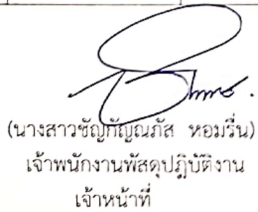 (นางสาวชัญกัญณภัส หอมรื่น)
เจ้าพนักงานพัสดุปฏิบัติงาน
เจ้าหน้าที่